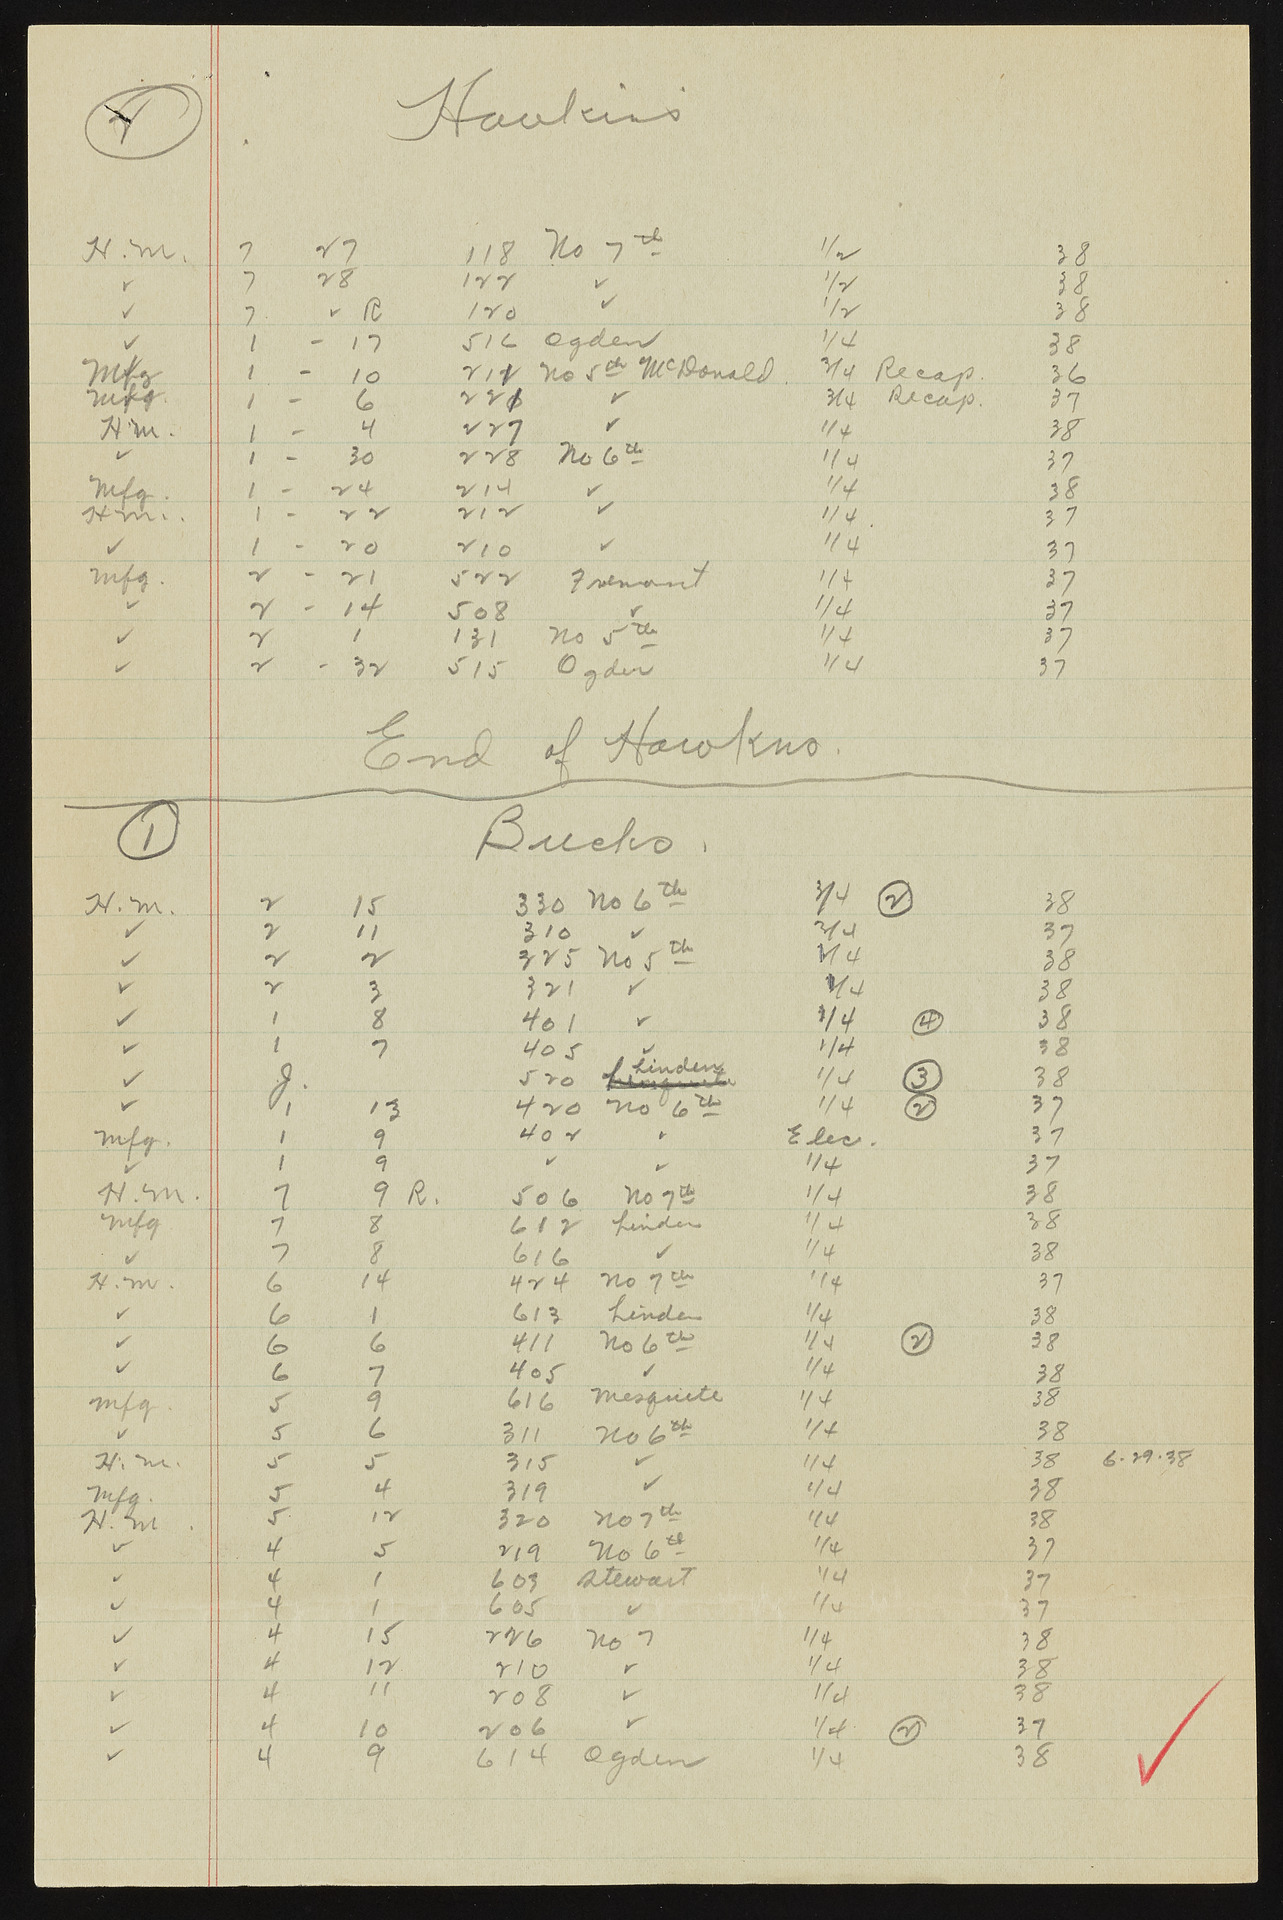 Hawkins
H.M. 7 27 118 No 7th 1/2 38
✓ 7 28 122 ✓ 1/2 38
✓ 7 ✓ R 120 ✓ 1/2 38
✓ 1 - 17 516 Ogden 1/4 38
Mfg 1 - 10 No 5th McDonald. 3/4 Recap. 36
Mfg. 1 - 6 ✓ 3/4 Recap. 37
H.M. 1 - 4 227 ✓ 1/4 38
✓ 1 - 30 228 No 6th 1/4 37
Mfg. 1 - 24 214 ✓ 1/4 38
H.M. 1 - 22 212 ✓ 1/4 37
✓ 1 - 20 210 ✓ 1/4 37
Mfg. 2 - 21 522 Fremont 1/4 37
✓ 2 - 14 508 ✓ 1/4 37
✓ 2 1 131 No 5th 1/4 37
✓ 2 - 32 515 Ogden 1/4 37
End of Hawkins.
1 Bucks.
H.M. 2 15 330 No 6th 3/4 2 38
✓ 2 11 310 ✓ 3/4 37
✓ 2 2 325 No 5th 1/4 38
✓ 2 3 321 ✓ 1/4 38
✓ 1 8 401 ✓ 1/4 4 38
✓ 1 7 405 ✓ 1/4 38
✓ J. 520 Linden 1/4 3 38
✓ 1 13 420 No 6th 1/4 2 37
Mfg. 1 9 402 ✓ Elec. 37
✓ 1 9 ✓ ✓ 1/4 37
H.M. 7 9 R. 506 No 7th 1/4 38
Mfg 7 8 612 Linden 1/4 38
✓ 7 8 616 ✓ 1/4 38
H.M. 6 14 424 No 7th 1/4 37
✓ 6 1 613 Linden 1/4 38
✓ 6 6 411 No 6th 1/4 2 38
✓ 6 7 405 ✓ 1/4 38
Mfg. 5 9 616 Mesquite 1/4 38
✓ 5 6 311 No 6th 1/4 38
H.M. 5 5 315 ✓ 1/4 38 6-29-38
Mfg. 5 4 319 ✓ 1/4 38
H.M. 5 12 320 No 7th 1/4 38
✓ 4 5 219 No 6th 1/4 37
✓ 4 1 603 Stewart 1/4 37
✓ 4 1 605 ✓ 1/4 37
✓ 4 15 226 No 7 1/4 38
✓ 4 12 210 ✓ 1/4 38
✓ 4 11 208 ✓ 1/4 38
✓ 4 10 206 ✓ 1/4 2 37
✓ 4 9 614 Ogden 1/4 38